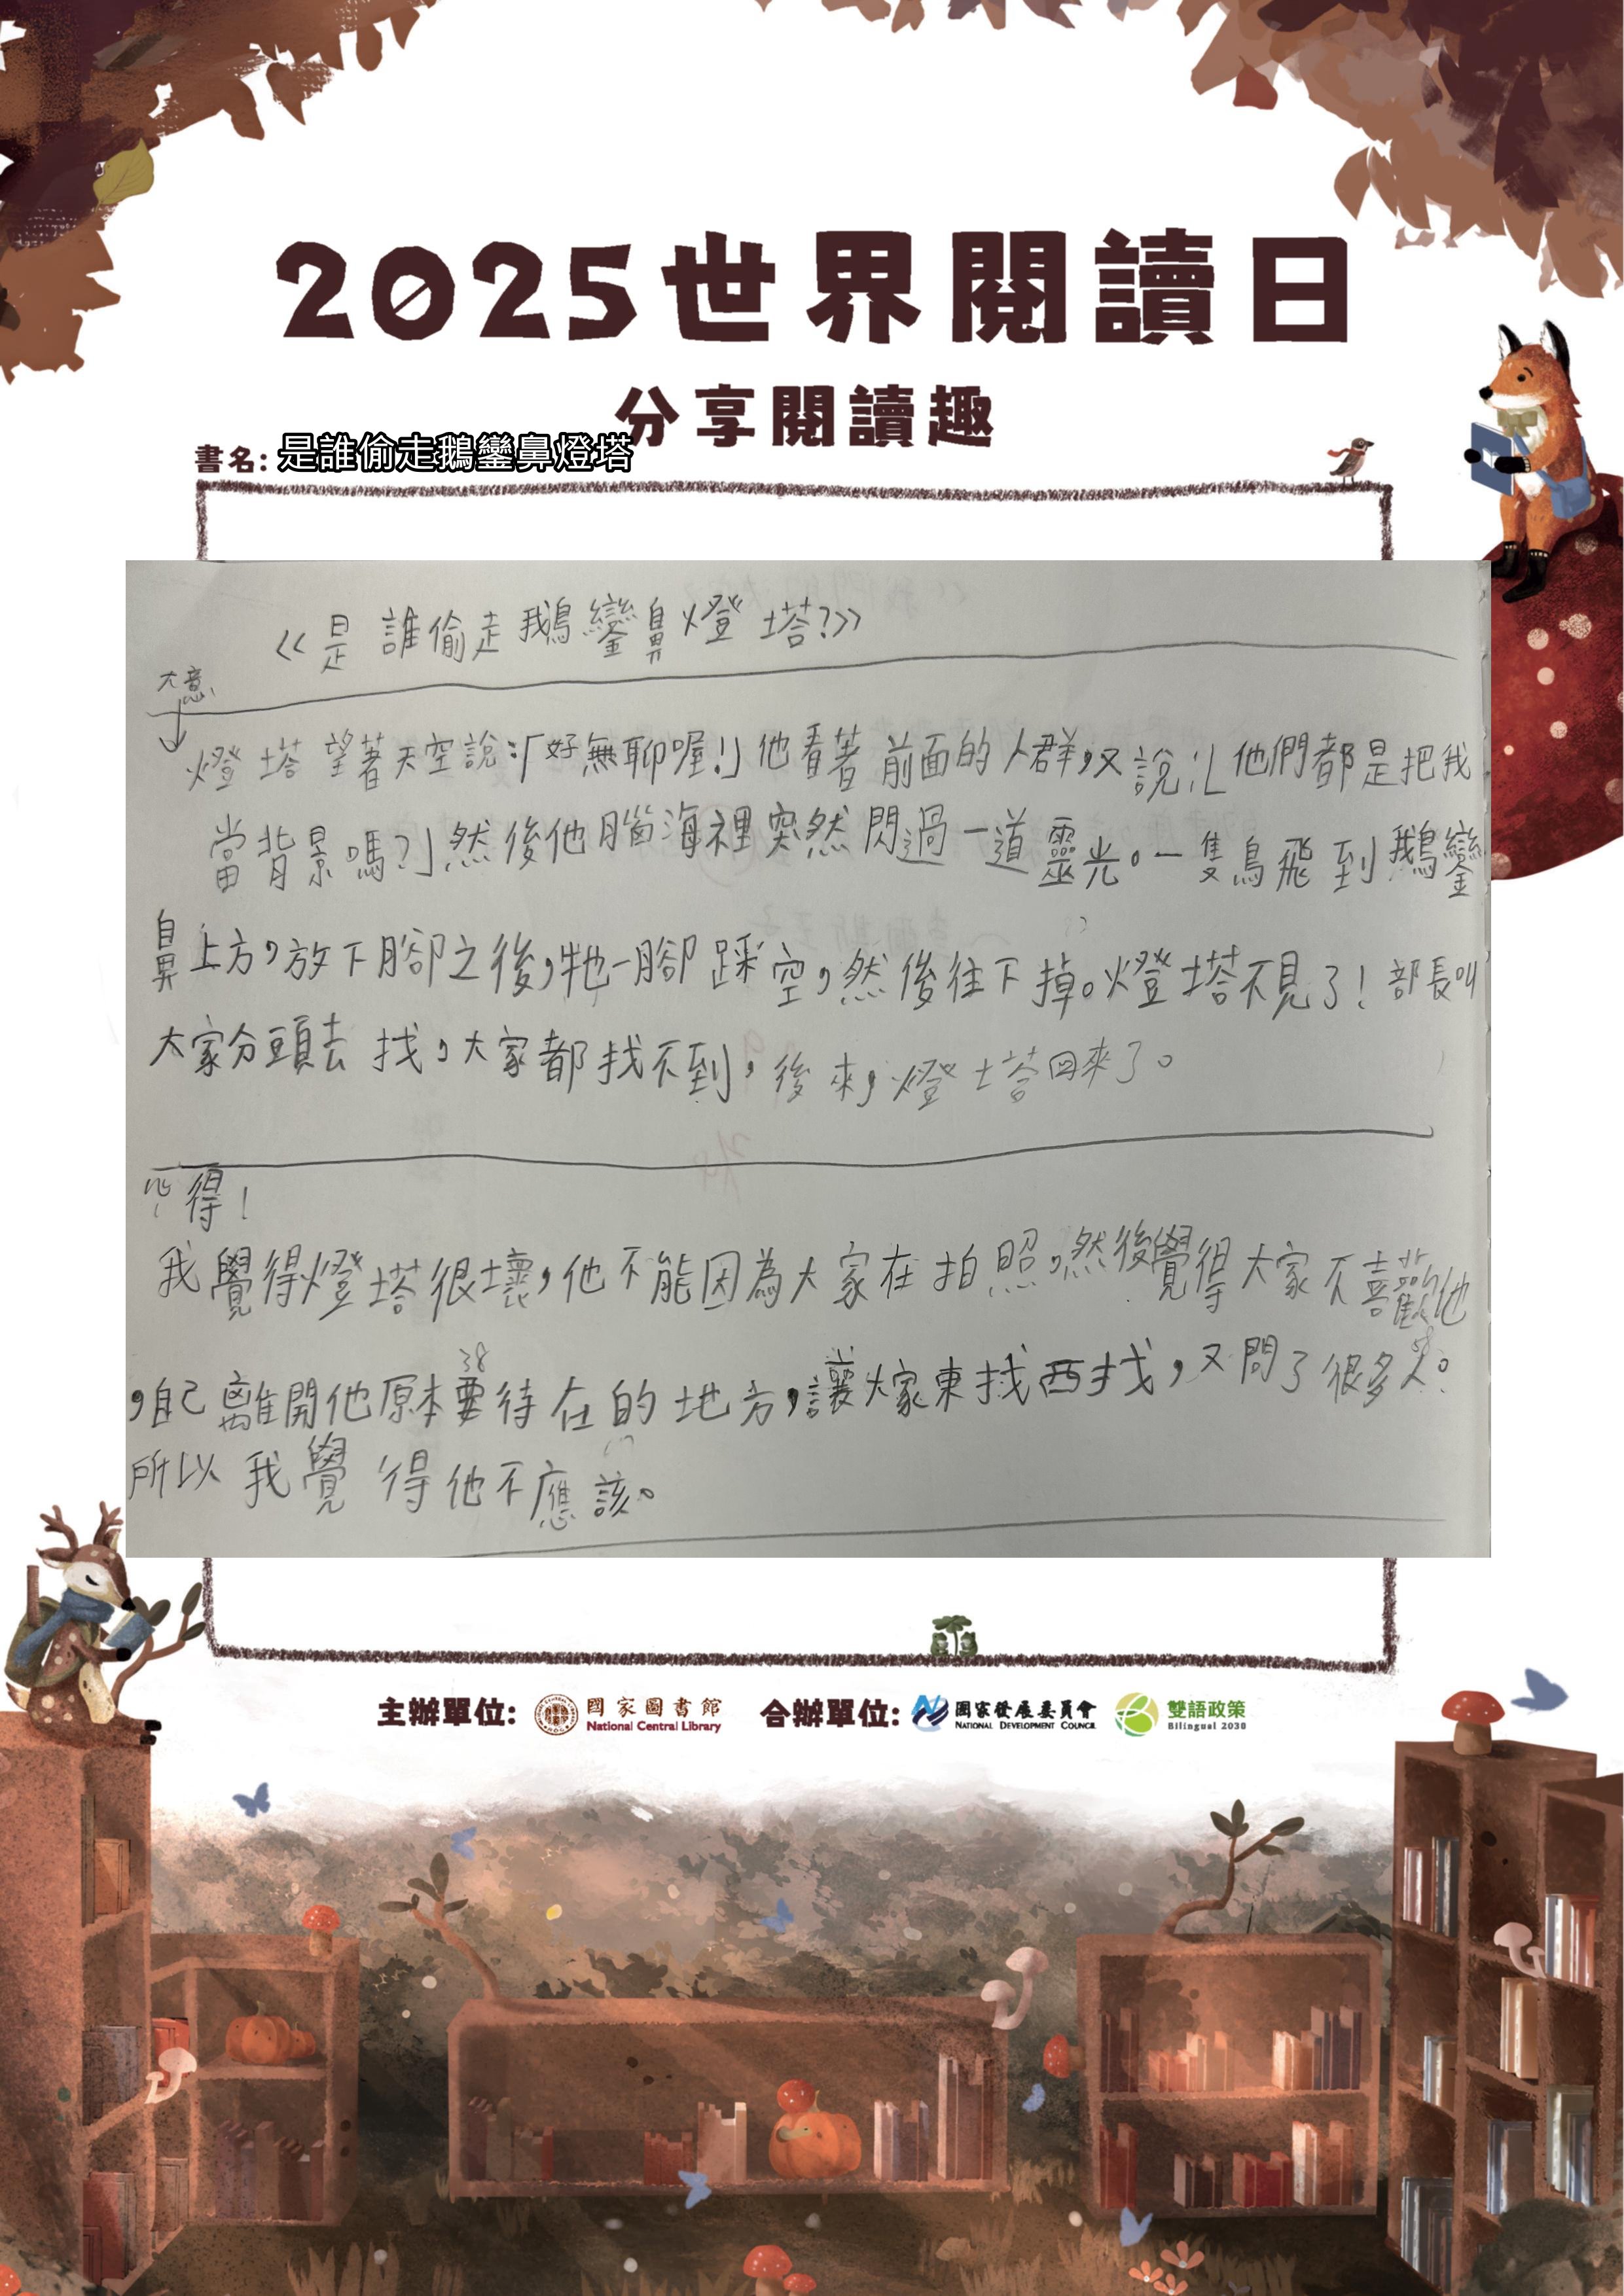 2025世界閱讀日
分享閱讀趣
書名: 是誰偷走鵝鑾鼻燈塔
《是誰偷走鵝鑾鼻燈塔?》
大意
燈塔望著天空說:「好無聊喔!」他看著前面的人群,又說:「他們都是把我
當背景嗎?」然後他腦海裡突然閃過一道靈光。一隻鳥飛到鵝鑾
鼻上方,放下腳之後,牠一腳踩空,然後往下掉。燈塔不見了!部長叫
大家分頭去找,大家都找不到,後來,燈塔回來了。
心得!
我覺得燈塔很壞,他不能因為大家在拍照,然後覺得大家不喜歡他
,自己離開他原本要待在的地方,讓大家東找西找,又問了很多人。
所以我覺得他不應該。
主辦單位: 國家圖書館 National Central Library 合辦單位: 國家發展委員會 NATIONAL DEVELOPMENT COUNCIL 雙語政策 Bilingual 2030